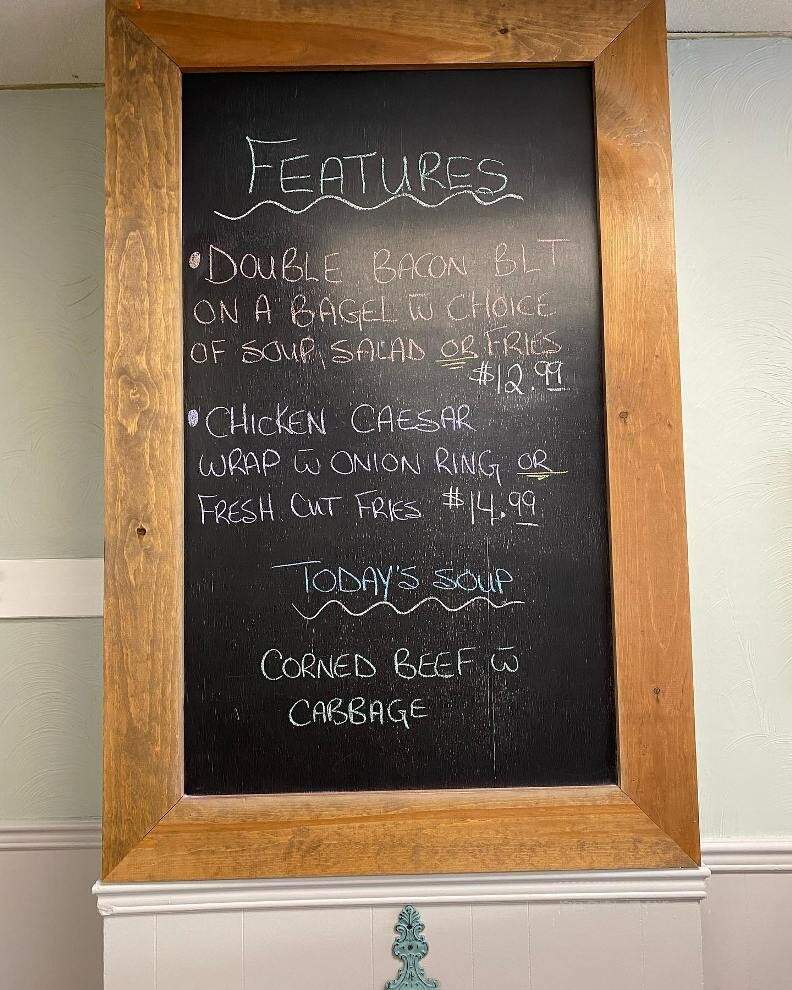 FEATURES
• DOUBLE BACON BLT
ON A BAGEL w̅ CHOICE
OF SOUP, SALAD OR FRIES
$12.99
• CHICKEN CAESAR
WRAP w̅ ONION RING OR
FRESH CUT FRIES $14.99
TODAY'S SOUP
CORNED BEEF w̅
CABBAGE